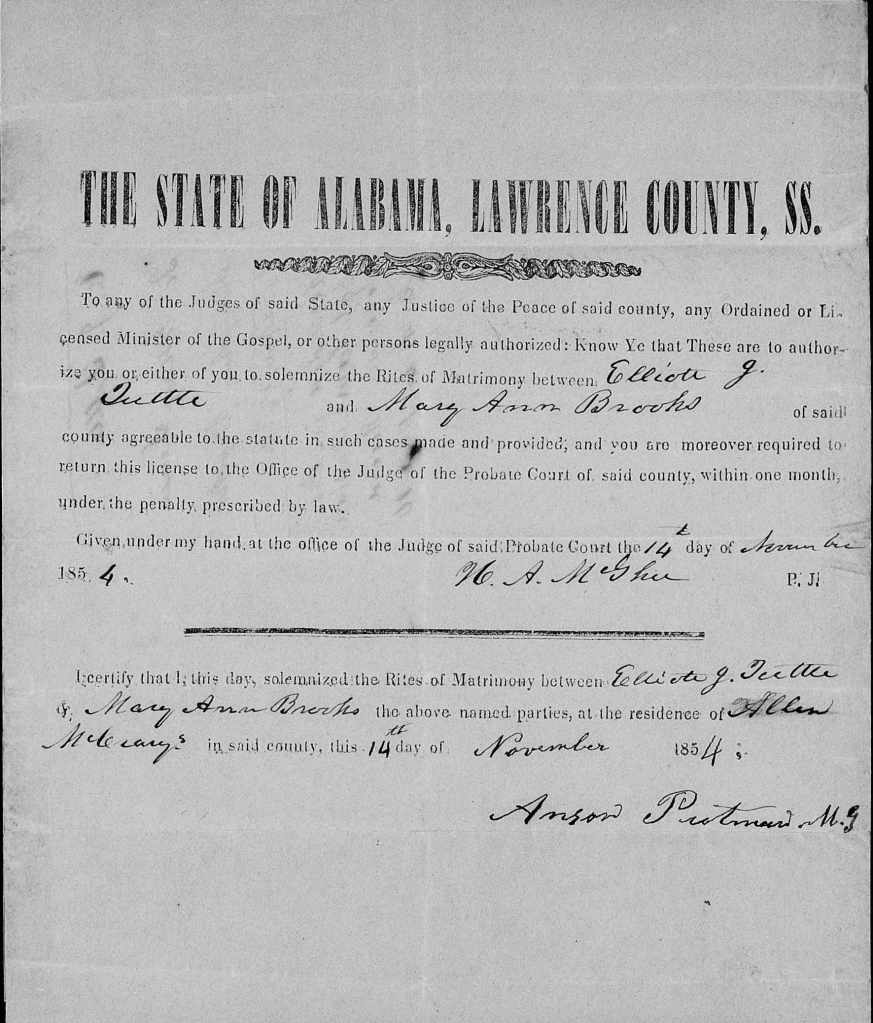 THE STATE OF ALABAMA, LAWRENCE COUNTY, SS.
To any of the Judges of said State, any Justice of the Peace of said county, any Ordained or Li-
censed Minister of the Gospel, or other persons legally authorized: Know Ye that These are to author-
ize you or either of you to solemnize the Rites of Matrimony between Elliott J.
Tuttle and Mary Ann Brooks of said
county agreeable to the statute in such cases made and provided; and you are moreover required to
return this license to the Office of the Judge of the Probate Court of said county, within one month,
under the penalty prescribed by law.
Given under my hand at the office of the Judge of said Probate Court the 14t day of November
1854. H. A. McGhee P. J.
I certify that I, this day, solemnized the Rites of Matrimony between Elliott J. Tuttle
& Mary Ann Brooks the above named parties, at the residence of Allen
McCrary's in said county, this 14th day of November 1854.
Anson Putman M. G